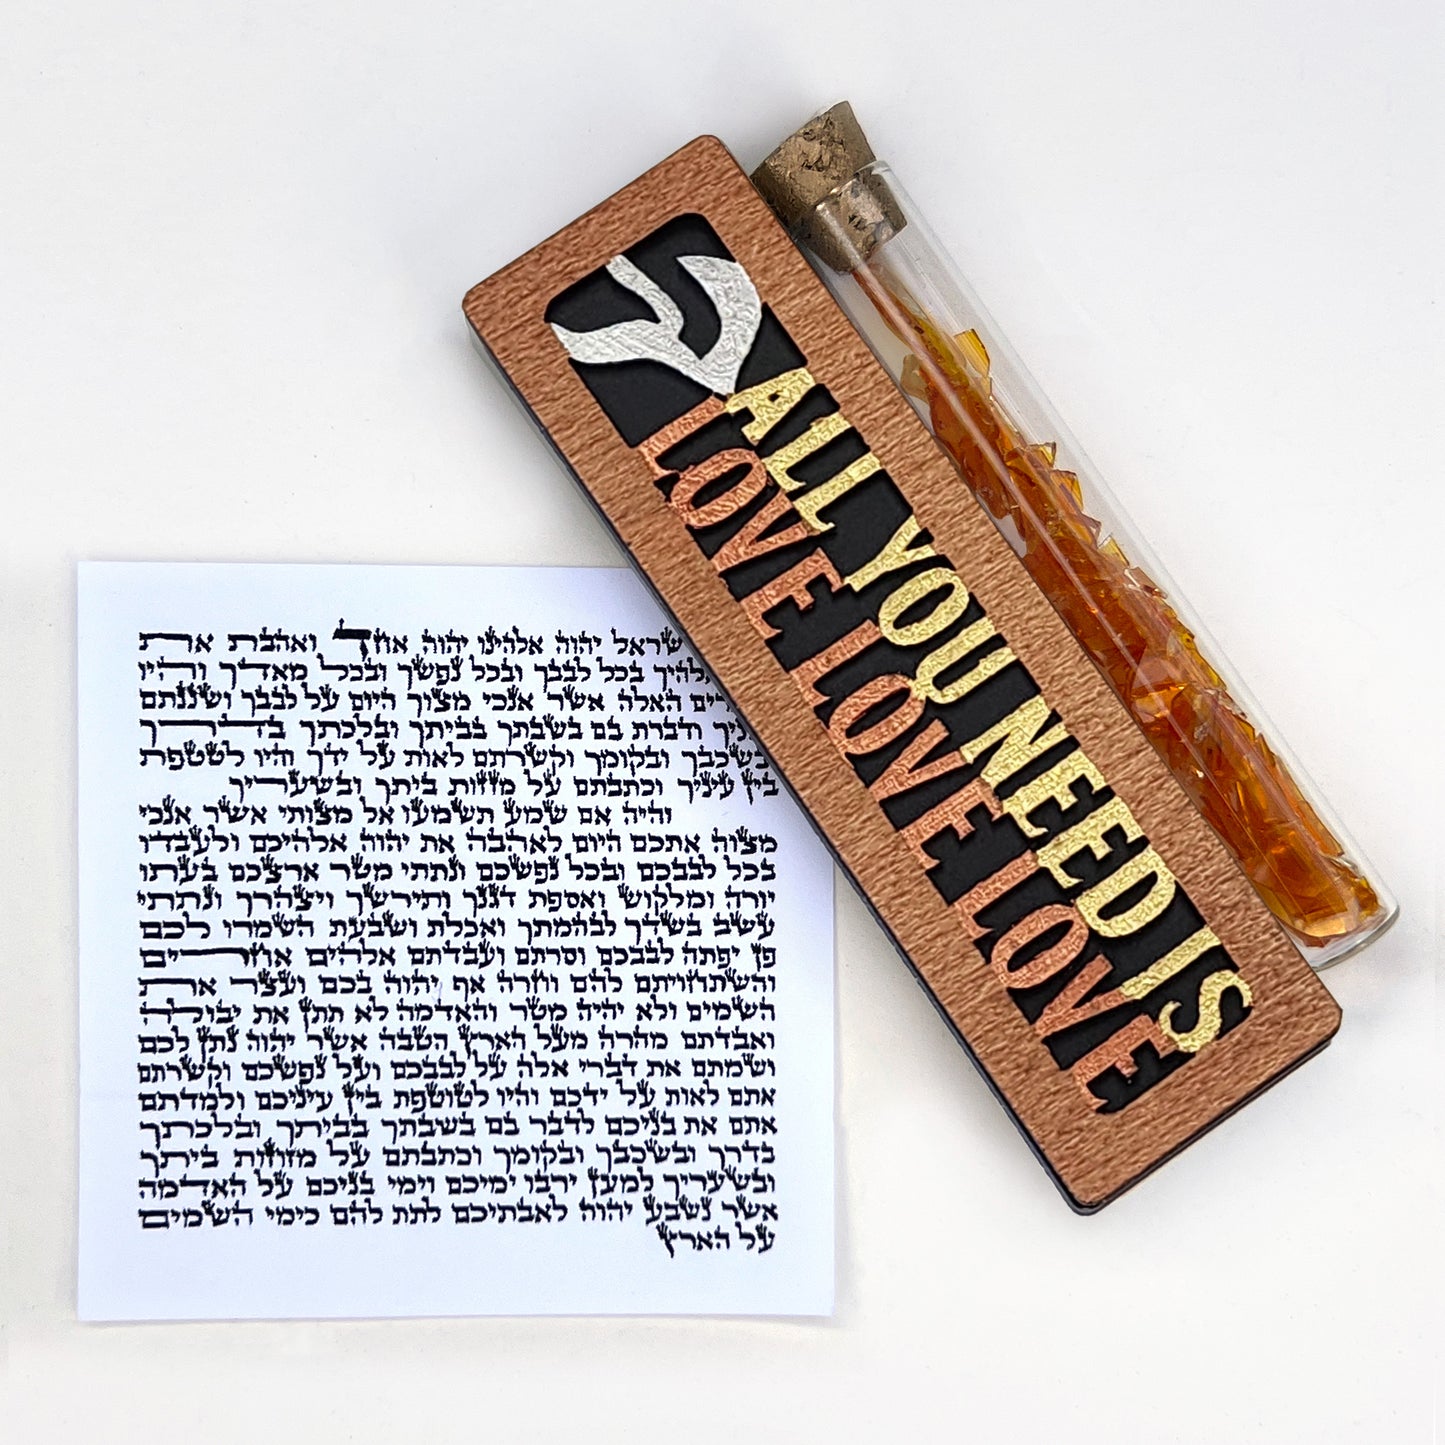 ש
ALL YOU NEED IS
LOVE LOVE LOVE
שראל יהוה אלהינו יהוה אחד ואהבת את
להיך בכל לבבך ובכל נפשך ובכל מאדך והיו
רים האלה אשר אנכי מצוך היום על לבבך ושננתם
ניך ודברת בם בשבתך בביתך ובלכתך בדרך
בשכבך ובקומך וקשרתם לאות על ידך והיו לטטפת
בין עיניך וכתבתם על מזזות ביתך ובשעריך
והיה אם שמע תשמעו אל מצותי אשר אנכי
מצוה אתכם היום לאהבה את יהוה אלהיכם ולעבדו
בכל לבבכם ובכל נפשכם ונתתי מטר ארצכם בעתו
יורה ומלקוש ואספת דגנך ותירשך ויצהרך ונתתי
עשב בשדך לבהמתך ואכלת ושבעת השמרו לכם
פן יפתה לבבכם וסרתם ועבדתם אלהים אחרים
והשתחויתם להם וחרה אף יהוה בכם ועצר את
השמים ולא יהיה מטר והאדמה לא תתן את יבולה
ואבדתם מהרה מעל הארץ הטבה אשר יהוה נתן לכם
ושמתם את דברי אלה על לבבכם ועל נפשכם וקשרתם
אתם לאות על ידכם והיו לטוטפת בין עיניכם ולמדתם
אתם את בניכם לדבר בם בשבתך בביתך ובלכתך
בדרך ובשכבך ובקומך וכתבתם על מזוזות ביתך
ובשעריך למען ירבו ימיכם וימי בניכם על האדמה
אשר נשבע יהוה לאבתיכם לתת להם כימי השמים
על הארץ